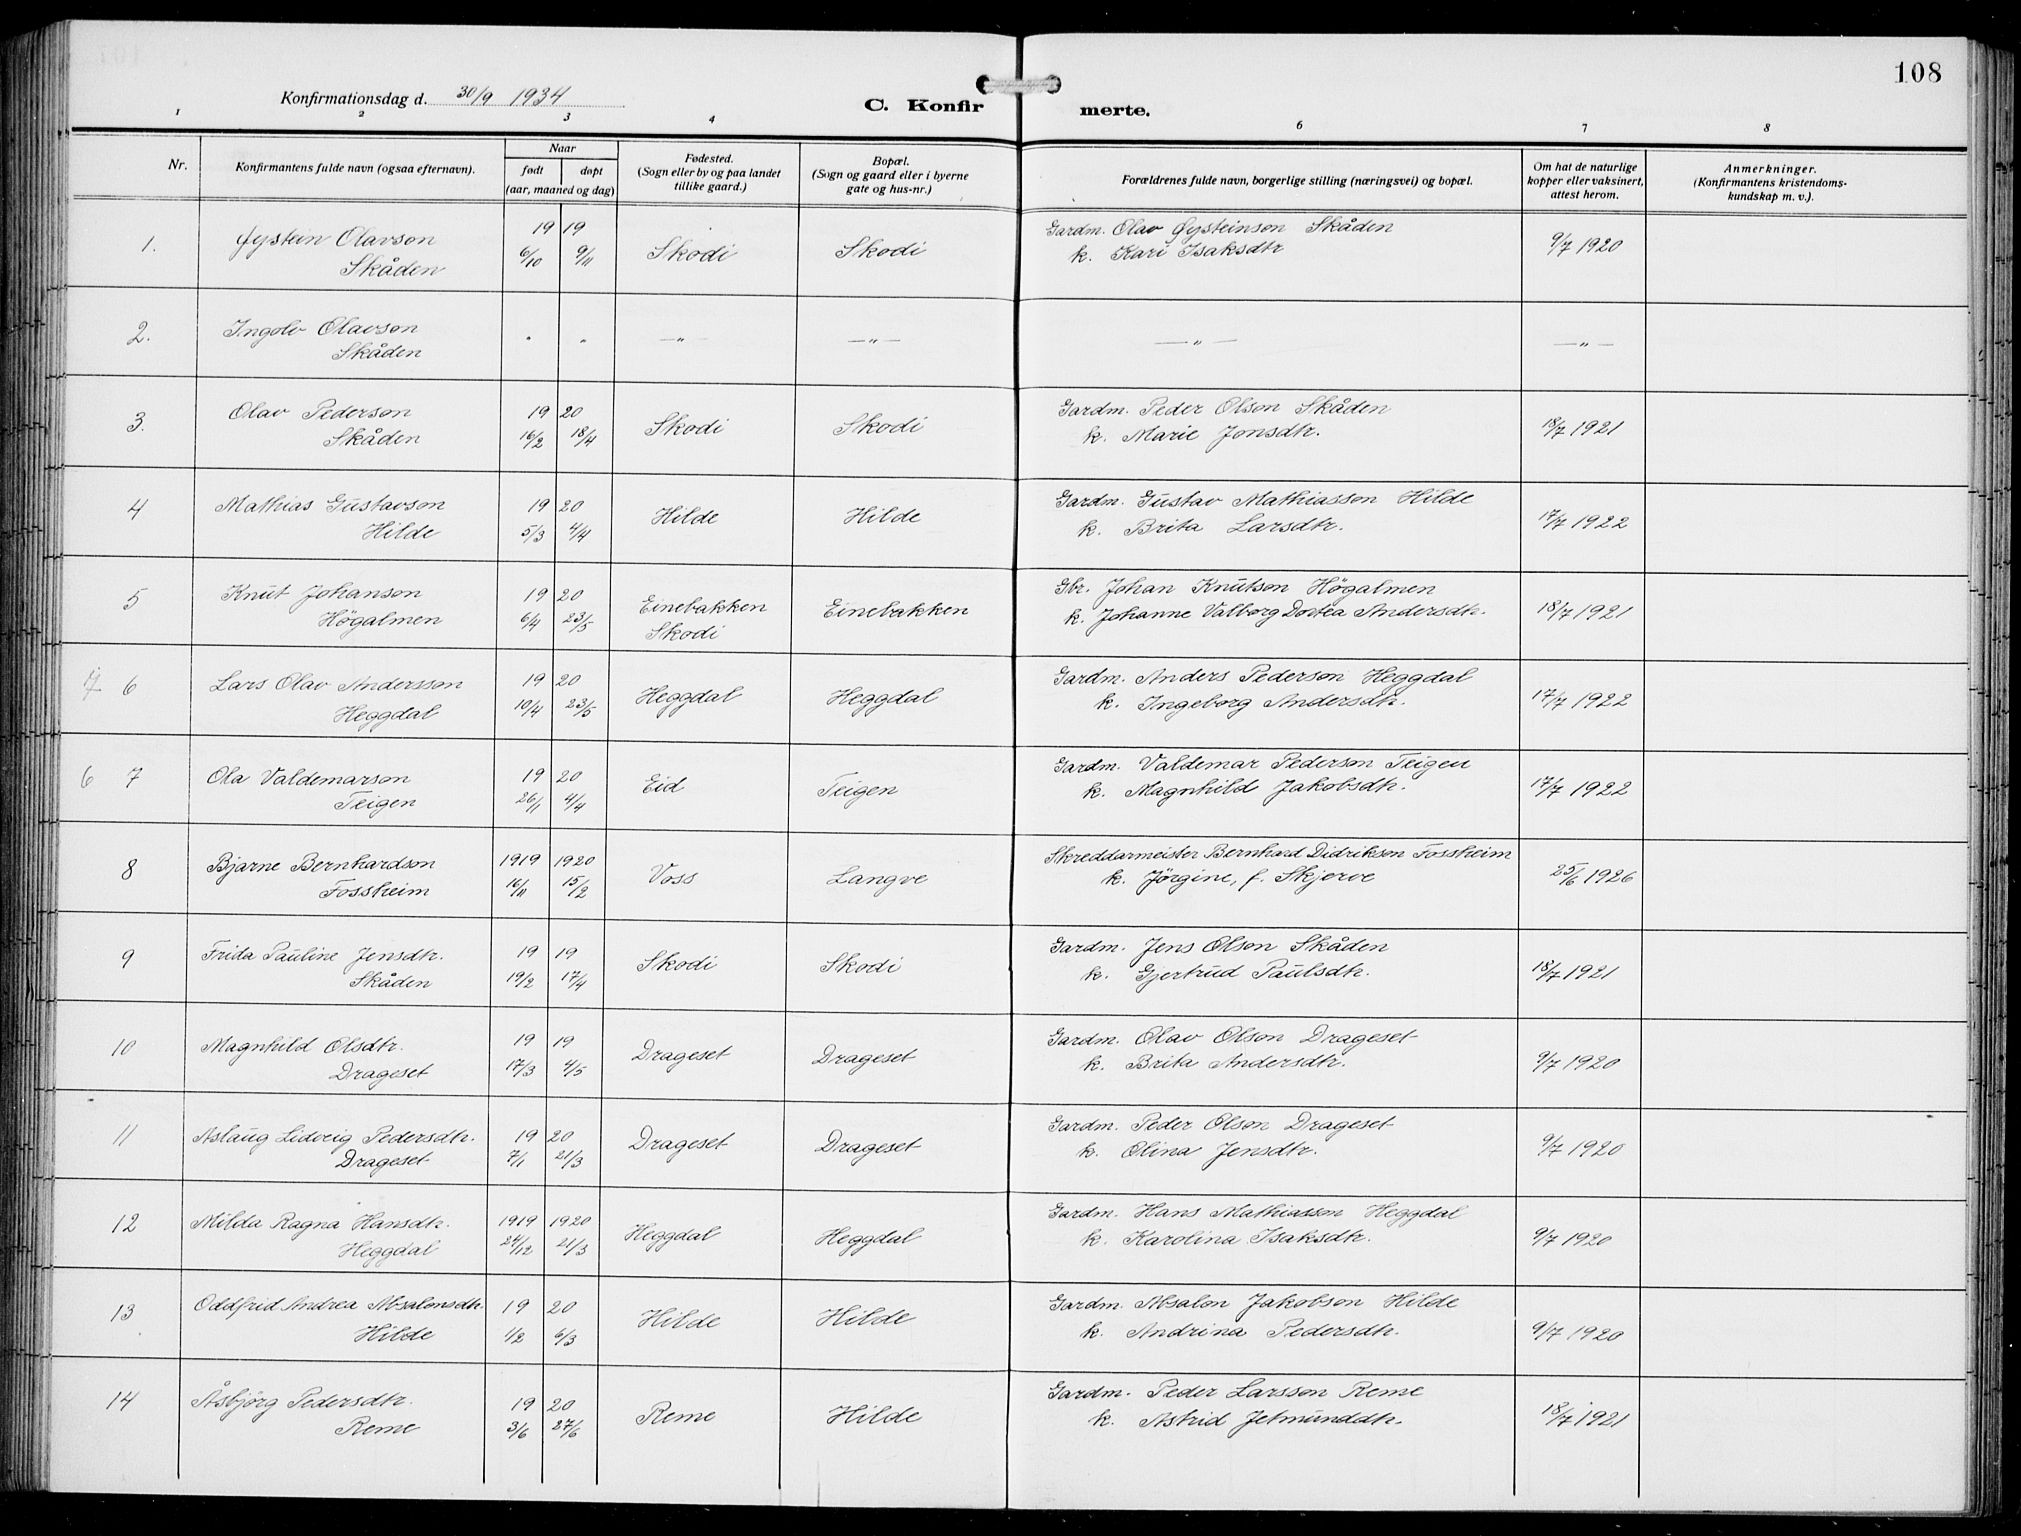 108
Konfirmationsdag d. 30/9 1934
C. Konfirmerte.
1 2 3 4 6 7 8
Nr.
Konfirmantens fulde navn (ogsaa efternavn).
Naar
født døpt
(aar, maaned og dag)
Fødested.
(Sogn eller by og paa landet
tillike gaard.)
Bopæl.
(Sogn og gaard eller i byerne
gate og hus-nr.)
Forældrenes fulde navn, borgerlige stilling (næringsvei) og bopæl.
Om hat de naturlige
kopper eller vaksinert,
attest herom.
Anmerkninger.
(Konfirmantens kristendoms-
kundskap m. v.).
1. Øystein Olavson 19 19 Skodi Skodi Gardm. Olav Øysteinson Skåden 9/7 1920
Skåden 6/10 9/11 k. Kari Isaksdtr
2. Ingolv Olavson " " —"— —"— —"— —"—
Skåden
3. Olav Pederson 19 20 Skodi Skodi Gardm. Peder Olson Skåden 18/7 1921
Skåden 16/2 18/4 k. Marie Jonsdtr.
4 Mathias Gustavson 19 20 Hilde Hilde Gardm. Gustav Mathiasson Hilde 17/7 1922
Hilde 5/3 4/4 k. Brita Larsdtr.
5 Knut Johanson 19 20 Einebakken Einebakken Gbr. Johan Knutson Högalmen 18/7 1921
Högalmen 6/4 23/5 Skodi k. Johanne Valborg Dortea Andersdtr.
7 6 Lars Olav Andersson 19 20 Heggdal Heggdal Gardm. Anders Pederson Heggdal 17/7 1922
Heggdal 10/4 23/5 k. Ingeborg Andersdtr.
6 7 Ola Valdemarson 19 20 Eid Teigen Gardm. Valdemar Pederson Teigen 17/7 1922
Teigen 26/1 4/4 k. Magnhild Jakobsdtr.
8 Bjarne Bernhardson 1919 1920 Voss Langve Skreddarmeister Bernhard Didrikson Fossheim 25/6 1926
Fossheim 16/11 15/2 k. Jörgine, f. Skjerve
9 Frida Pauline Jensdtr. 19 19 Skodi Skodi Gardm. Jens Olson Skåden 18/7 1921
Skåden 19/2 17/4 k. Gjertrud Paulsdtr.
10 Magnhild Olsdtr. 19 19 Drageset Drageset Gardm. Olav Olson Drageset 9/7 1920
Drageset 17/3 4/5 k. Brita Andersdtr.
11 Aslaug Lidveig Pedersdtr. 19 20 Drageset Drageset Gardm. Peder Olson Drageset 9/7 1920
Drageset 7/1 21/3 k. Olina Jensdtr.
12 Milda Ragna Hansdtr. 1919 1920 Heggdal Heggdal Gardm. Hans Mathiasson Heggdal 9/7 1920
Heggdal 24/12 21/3 k. Karolina Isaksdtr.
13 Oddfrid Andrea Absalonsdtr. 19 20 Hilde Hilde Gardm. Absalon Jakobson Hilde 9/7 1920
Hilde 1/2 6/3 k. Andrina Pedersdtr.
14 Åsbjörg Pedersdtr. 19 20 Reme Hilde Gardm. Peder Larsson Reme 18/7 1921
Reme 3/6 27/6 k. Astrid Jetmunddtr.